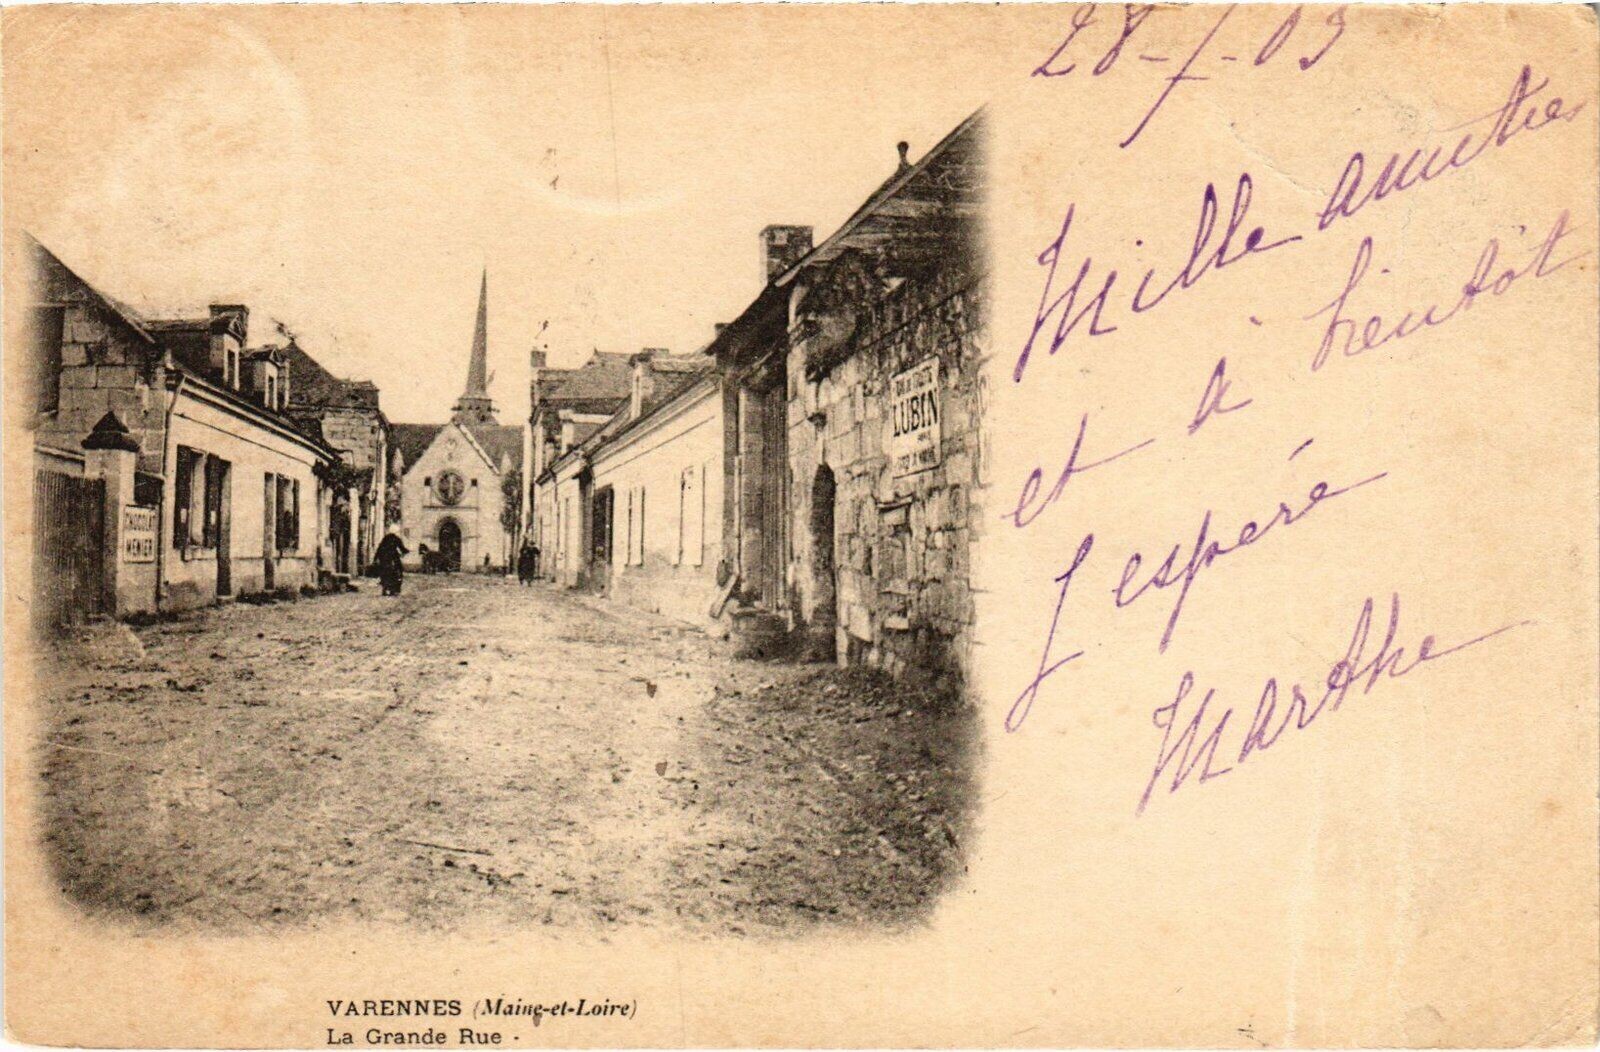 28-7-03
Mille amitiés
et à bientôt
J'espère
Marthe
CHOCOLAT
MENIER
LUBIN
VARENNES (Maine-et-Loire)
La Grande Rue -